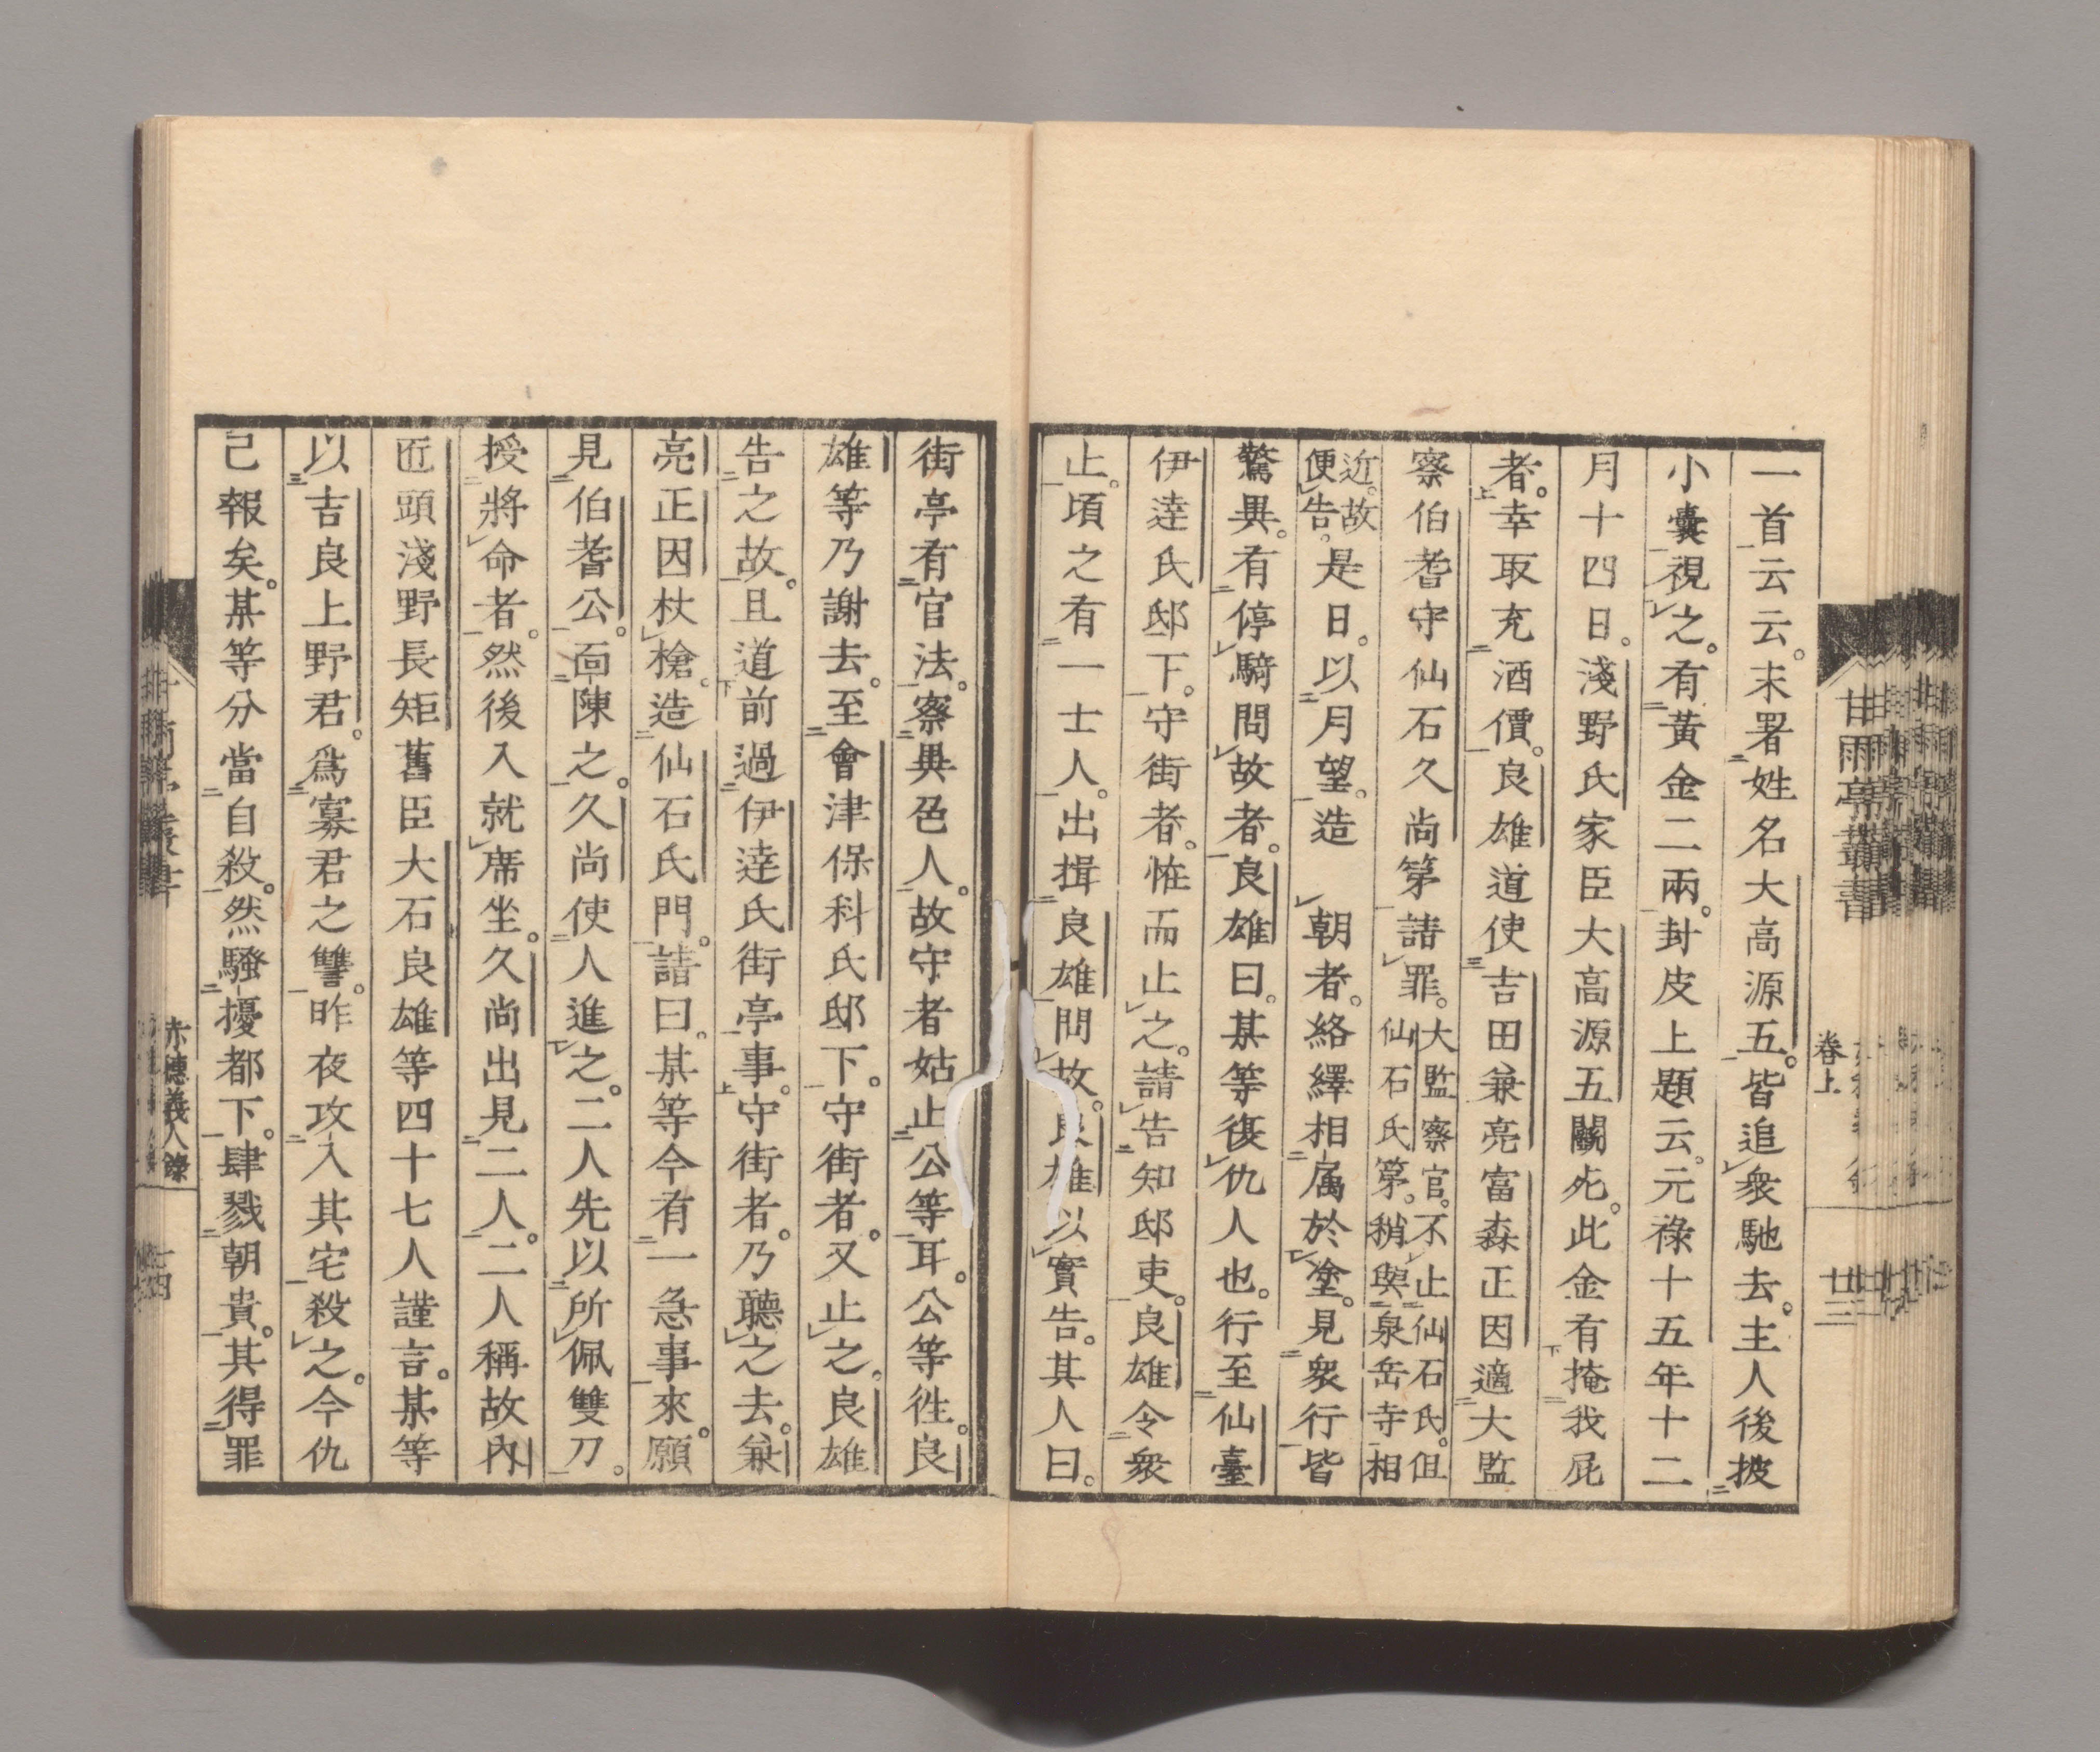 一首云云。末署姓名大高源五。皆追衆馳去。主人後披
小囊視之。有黃金二兩。封皮上題云。元祿十五年十二
月十四日。淺野氏家臣大高源五鬭死。此金有掩我屍
者。幸取充酒價。良雄道使吉田兼亮富森正因適大監
察伯耆守仙石久尚第請罪。大監察官。不止仙石氏。但
仙石氏第。稍與泉岳寺相
近。故
便告。是日。以月望。造　朝者。絡繹相属於塗。見衆行皆
驚異。有停騎問故者。良雄曰。某等復仇人也。行至仙臺
伊達氏邸下。守街者。恠而止之。請告知邸吏。良雄令衆
止。頃之有一士人。出揖良雄問故。良雄以實告。其人曰。
甘雨亭叢書
卷上
廿三
街亭有官法。察異色人。故守者姑止公等耳。公等徃。良
雄等乃謝去。至會津保科氏邸下。守街者。又止之。良雄
告之故。且道前過伊達氏街亭事。守街者。乃聽之去。兼
亮正因杖槍。造仙石氏門。請曰。某等今有一急事來。願
見伯耆公。面陳之。久尚使人進之。二人先以所佩雙刀。
授將命者。然後入就席坐。久尚出見二人。二人稱故內
匠頭淺野長矩舊臣大石良雄等四十七人謹言。某等
以吉良上野君。爲寡君之讐。昨夜攻入其宅殺之。今仇
已報矣。某等分當自殺。然騷擾都下。肆戮朝貴。其得罪
赤穗義人錄